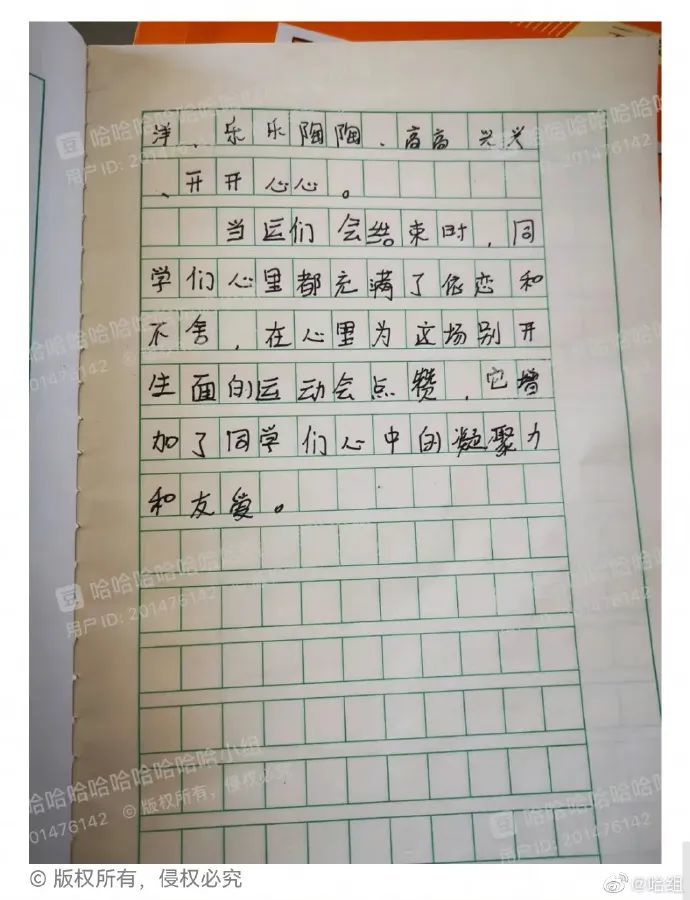 洋、乐乐陶陶、高高兴兴
、开开心心。
当运们会结束时，同
学们心里都充满了依恋和
不舍，在心里为这场别开
生面的运动会点赞，它增
加了同学们心中的凝聚力
和友爱。
豆 哈哈哈哈哈哈哈哈小组
用户ID: 201476142 © 版权所有，侵权必究
© 版权所有，侵权必究
@哈组